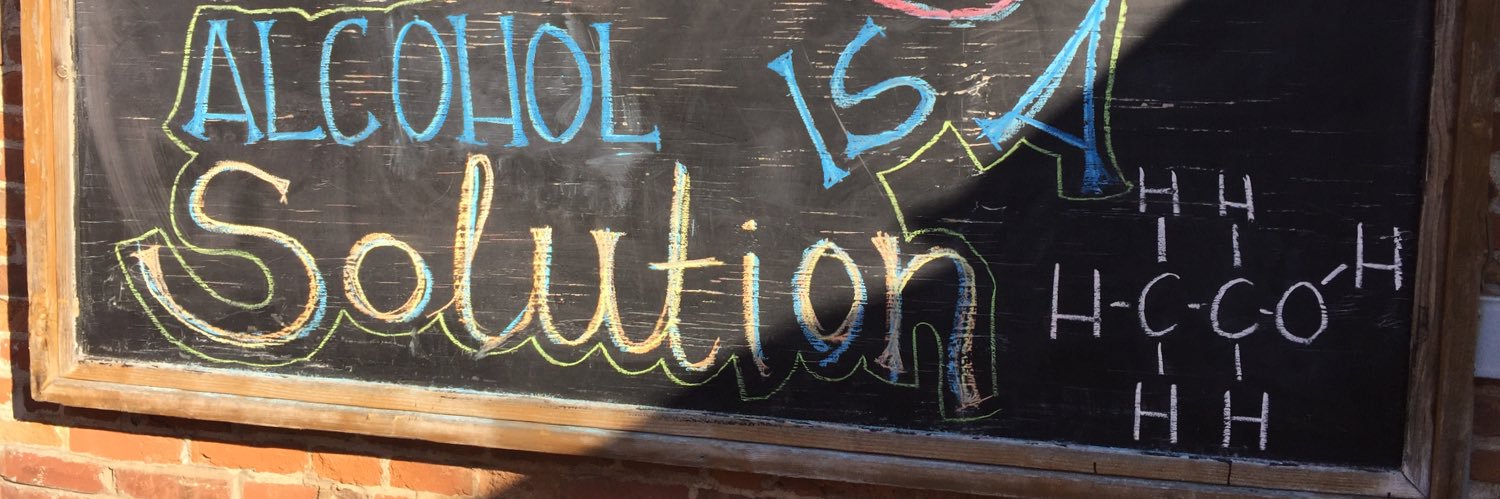 ALCOHOL IS A
Solution
H H
H-C-C-O-H
H H